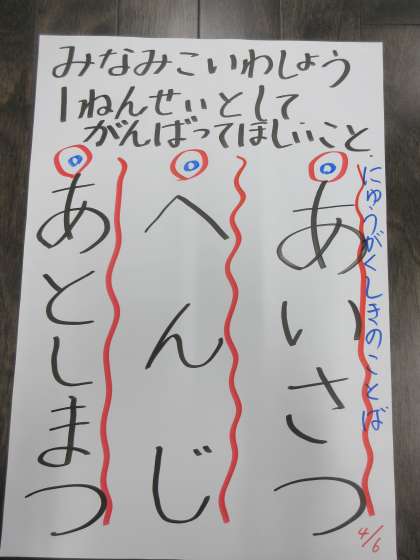 みなみこいわしょう
1ねんせいとして
がんばってほしいこと
にゅうがくしきのことば
あいさつ
へんじ
あとしまつ
4/6